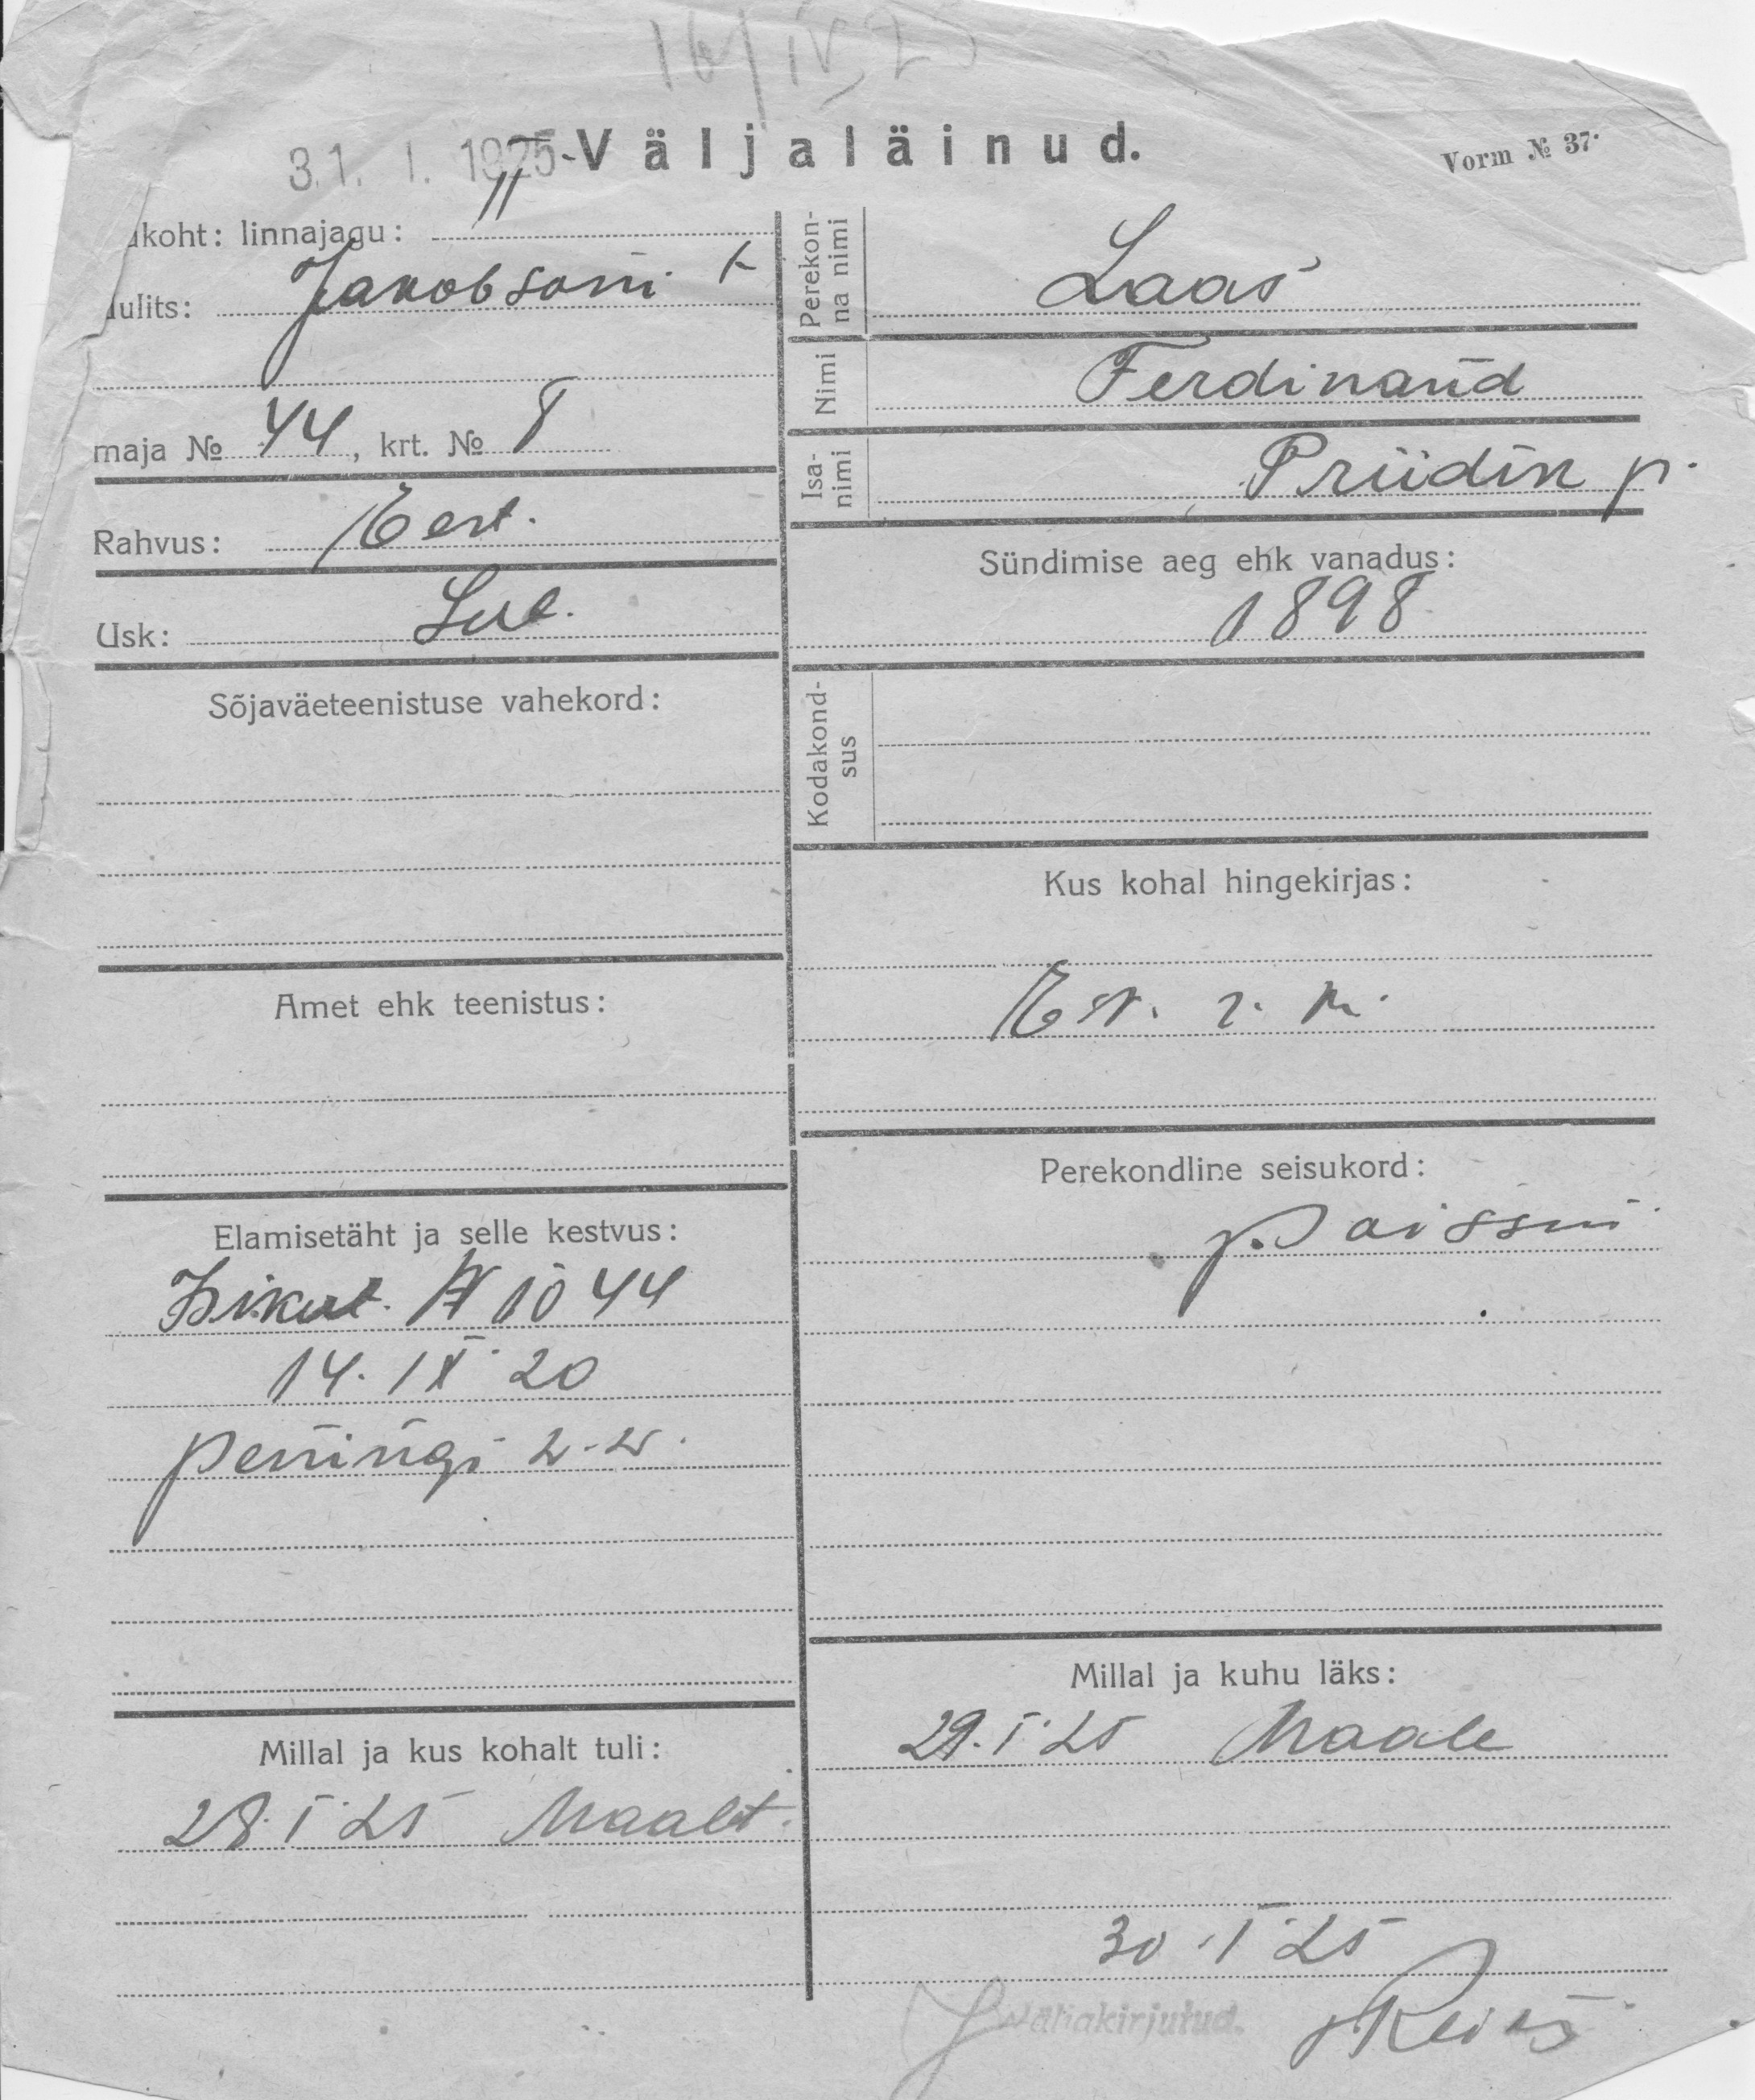 16/IV 25
31. I. 1925
Väljaläinud.
Vorm № 37.
ukoht: linnajagu: II
uulits: Jakobsoni t
maja № 44, krt. № 8
Rahvus: Eest.
Usk: Lut.
Sõjaväeteenistuse vahekord:
Amet ehk teenistus:
Elamisetäht ja selle kestvus:
Isikut. № 1044
14. IX 20
Peningi v.-v.
Millal ja kus kohalt tuli:
28. I 25 Maalt.
Perekon-
na nimi
Laas
Nimi
Ferdinand
Isa-
nimi
Priidik p.
Sündimise aeg ehk vanadus:
1898
Kodakond-
sus
Kus kohal hingekirjas:
Est.
Perekondline seisukord:
poissm.
Millal ja kuhu läks:
29. I 25 Maale
30. I 25
Väljakirjutud.